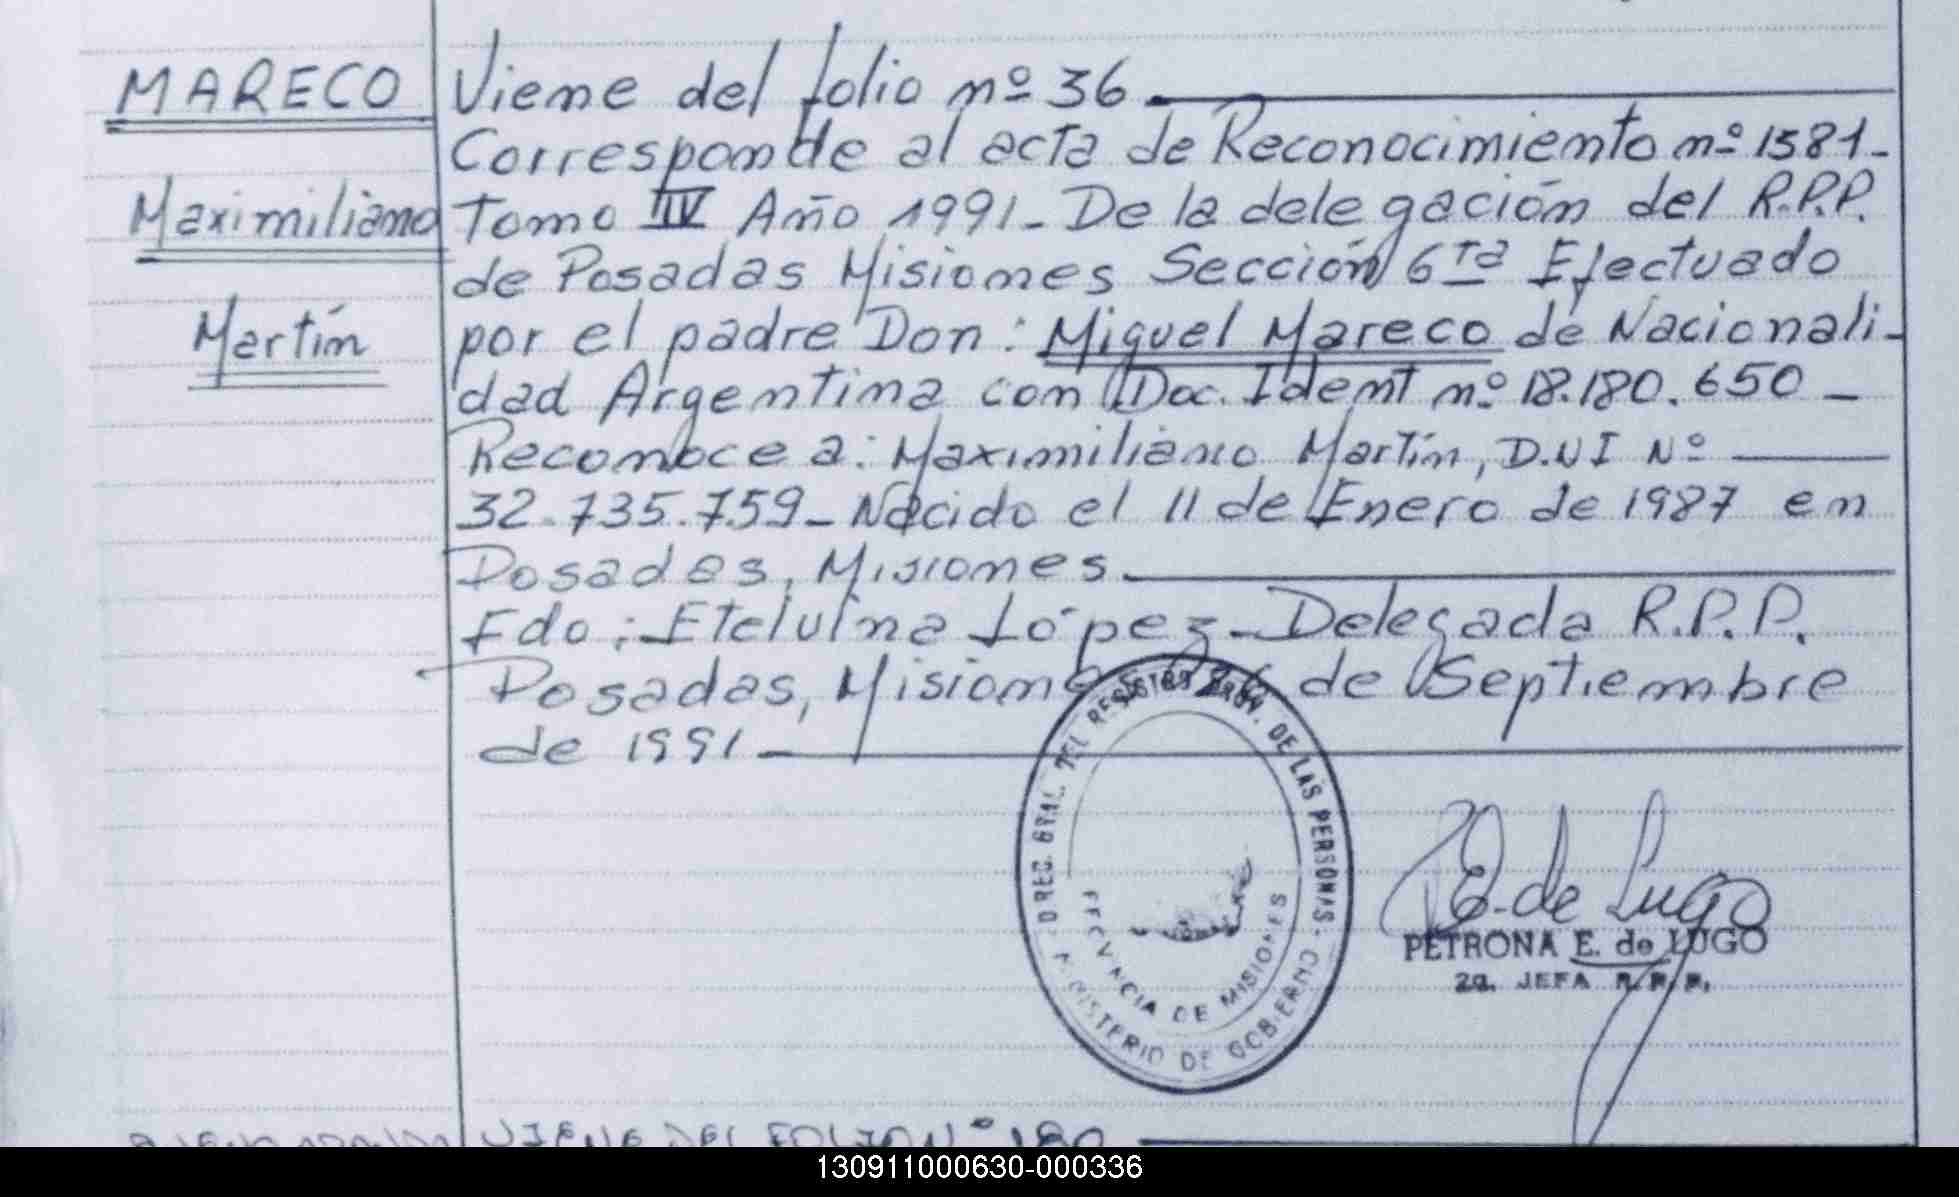 MARECO
Maximiliano
Martín
Viene del folio nº 36
Corresponde al acta de Reconocimiento nº 1581-
Tomo IV Año 1991- De la delegación del R.P.P.
de Posadas Misiones Sección 6ta Efectuado
por el padre Don: Miguel Mareco de Nacionali-
dad Argentina con Doc. Ident nº 18.180.650 -
Reconoce a: Maximiliano Martín, D.N.I Nº
32.735.759- Nacido el 11 de Enero de 1987 en
Posadas, Misiones.
Fdo: Etelvina López- Delegada R.P.P.
Posadas, Misiones de Septiembre
de 1991-
DIREC. GRAL. DEL REGISTRO PROV. DE LAS PERSONAS
PROVINCIA DE MISIONES
MINISTERIO DE GOBIERNO
E. de Lugo
PETRONA E. de LUGO
2a. JEFA R.P.P.
VIENE DEL FOLIO Nº 180
130911000630-000336